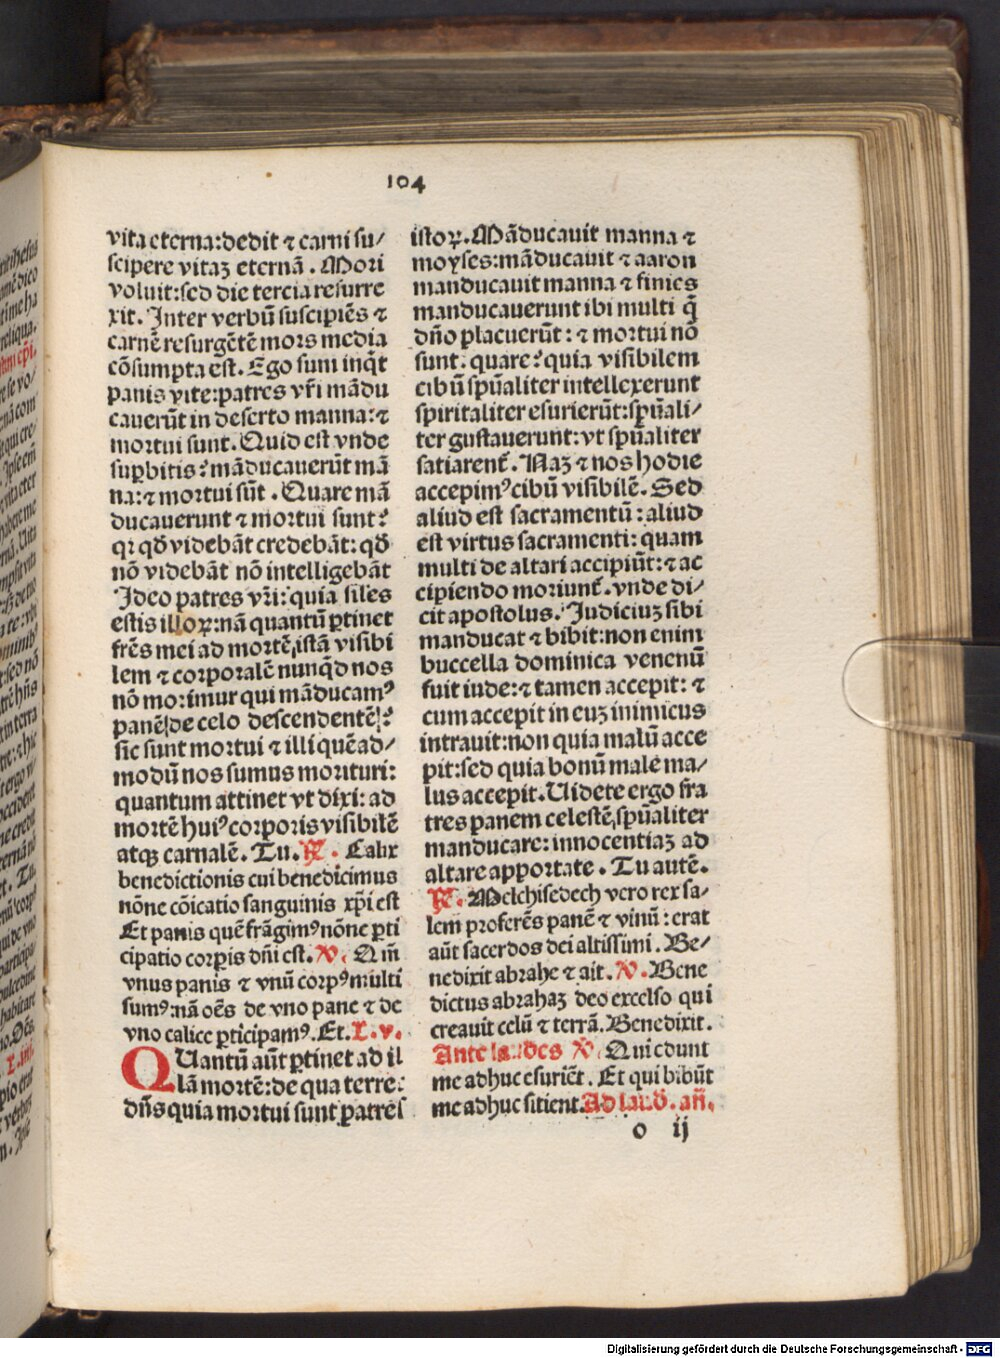 104
vita eterna:dedit ⁊ carni su/
scipere vitaʒ eternā. Mori
voluit:sed die tercia resurre
xit. Inter verbū suscipiēs ⁊
carnē resurgētē mors media
cōsumpta est. Ego sum inqͥt
panis vite:patres vr̄i mādu
cauerūt in deserto manna:⁊
mortui sunt. Quid est vnde
suꝑbitis? māducauerūt mā
na:⁊ mortui sūt. Quare mā
ducauerunt ⁊ mortui sunt?
qꝛ qd̄ videbāt credebāt: qd̄
nō videbāt nō intelligebāt
Ideo patres vr̄i: quia siľes
estis illoꝝ:nā quantū ꝑtinet
frēs mei ad mortē istā visibi
lem ⁊ corporalē nunqͥd nos
nō morimur qui māducamꝰ
panē de celo descendentē?
sic sunt mortui ⁊ illi quēad/
modū nos sumus morituri:
quantum attinet vt dixi: ad
mortē huiꝰ corporis visibilē
atqꝫ carnalē. Tu. ℟. Calix
benedictionis cui benedicimus
nōne cōicatio sanguinis xp̄i est
Et panis quē frāgimꝰ nōne ꝑti
cipatio corꝑis dn̄i est. ℣. Qm̄
vnus panis ⁊ vnū corpꝰ multi
sumꝰ:nā oēs de vno pane ⁊ de
vno calice ꝑticipamꝰ. Et. L. v.
QUantū aūt ꝑtinet ad il
lā mortē: de qua terre:
dn̄s quia mortui sunt patres
istoꝝ. Māducauit manna ⁊
moyses:māducauit ⁊ aaron
manducauit manna ⁊ finies
manducauerunt ibi multi q̄
dn̄o placuerūt: ⁊ mortui nō
sunt. quare? quia visibilem
cibū spūaliter intellexerunt
spiritaliter esurierūt:spūali/
ter gustauerunt: vt spūaliter
satiarent̄. Naʒ ⁊ nos hodie
accepimꝰ cibū visibilē. Sed
aliud est sacramentū: aliud
est virtus sacramenti: quam
multi de altari accipiūt: ⁊ ac
cipiendo moriunt̄. vnde di/
cit apostolus. Judiciuʒ sibi
manducat ⁊ bibit: non enim
buccella dominica venenū
fuit iude:⁊ tamen accepit: ⁊
cum accepit in euʒ inimicus
intrauit:non quia malū acce
pit:sed quia bonū male ma/
lus accepit. Uidete ergo fra
tres panem celestē spūaliter
manducare: innocentiaʒ ad
altare apportate. Tu autē.
℟. Melchisedech vero rex sa/
lem proferēs panē ⁊ vinū: erat
aūt sacerdos dei altissimi. Be/
nedixit abrahe ⁊ ait. ℣. Bene
dictus abrahaʒ deo excelso qui
creauit celū ⁊ terrā. Benedixit.
Ante laudes ℣. Qui edunt
me adhuc esuriēt. Et qui bibūt
me adhuc sitient. Ad laud̄. an̄.
o ij
Digitalisierung gefördert durch die Deutsche Forschungsgemeinschaft - DFG